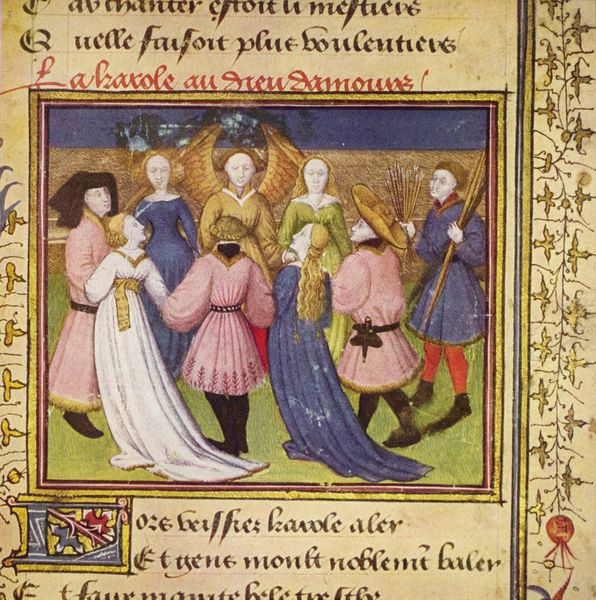 av chanter estoit li mestiers
Q uelle faisoit plus voulentiers
La karole au dieu damours
Lors veissiez karole aler
Et gens moult noblemt baler
E t faire mainte bele tresche